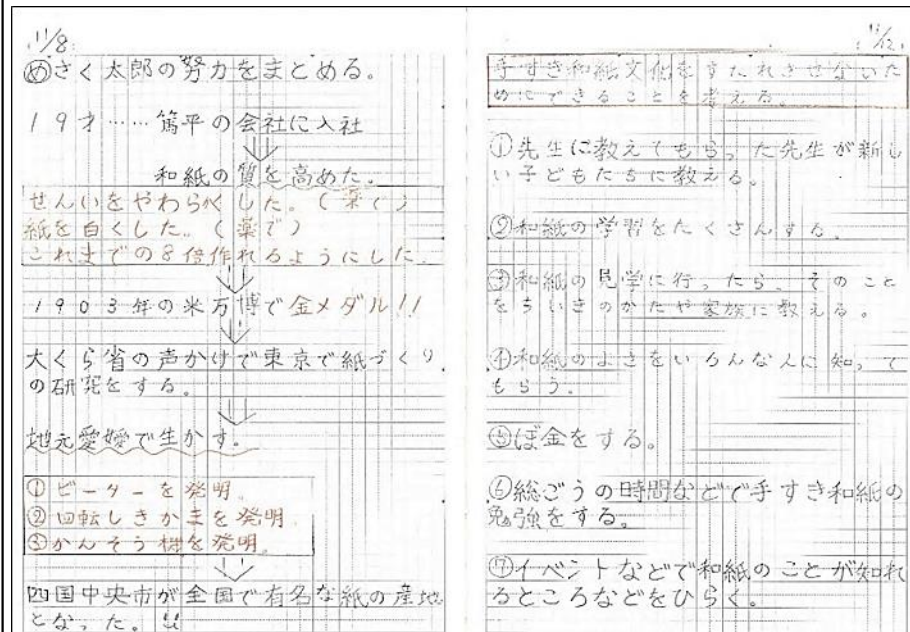 11/8
めさく太郎の努力をまとめる。
19才……篤平の会社に入社
和紙の質を高めた。
せんいをやわらかくした。(薬で)
紙を白くした。(薬で)
これまでの8倍作れるようにした
1903年の米万博で金メダル!!
大くら省の声かけで東京で紙づくり
の研究をする。
地元愛媛で生かす。
①ビーターを発明
②回転しきかまを発明
③かんそう機を発明
四国中央市が全国で有名な紙の産地
となった。!!
11/12
手すき和紙文化をすたれさせないた
めにできることを考える。
①先生に教えてもらった先生が新し
い子どもたちに教える。
②和紙の学習をたくさんする。
③和紙の見学に行ったら、そのこと
をちいきのかたや家族に教える。
④和紙のよさをいろんな人に知って
もらう。
⑤ぼ金をする。
⑥総ごうの時間などで手すき和紙の
勉強をする。
⑦イベントなどで和紙のことが知れ
るところなどをひらく。